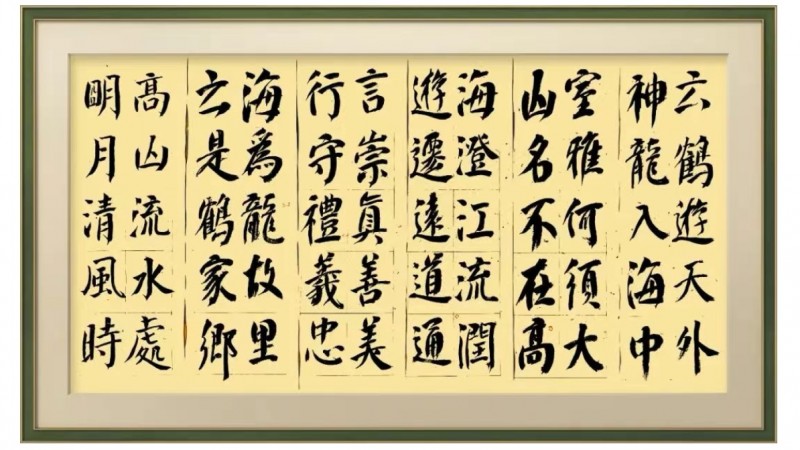 云鶴遊天外
神龍入海中
室雅何須大
山名不在高
海澄江流潤
遊遷遠道通
言崇眞善美
行守禮義忠
海為龍故里
云是鶴家鄉
高山流水處
明月清風時